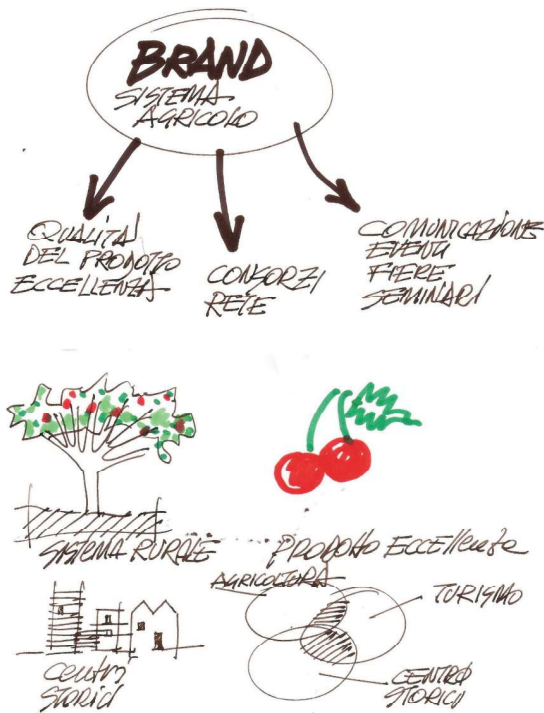 BRAND
SISTEMA
AGRICOLO
QUALITA'
DEL PRODOTTO
ECCELLENZA
CONSORZI
RETE
COMUNICAZIONE
EVENTI
FIERE
SEMINARI
SISTEMA RURALE
PRODOTTO ECCELLENTE
AGRICOLTURA
TURISMO
CENTRI
STORICI
CENTRO
STORICI